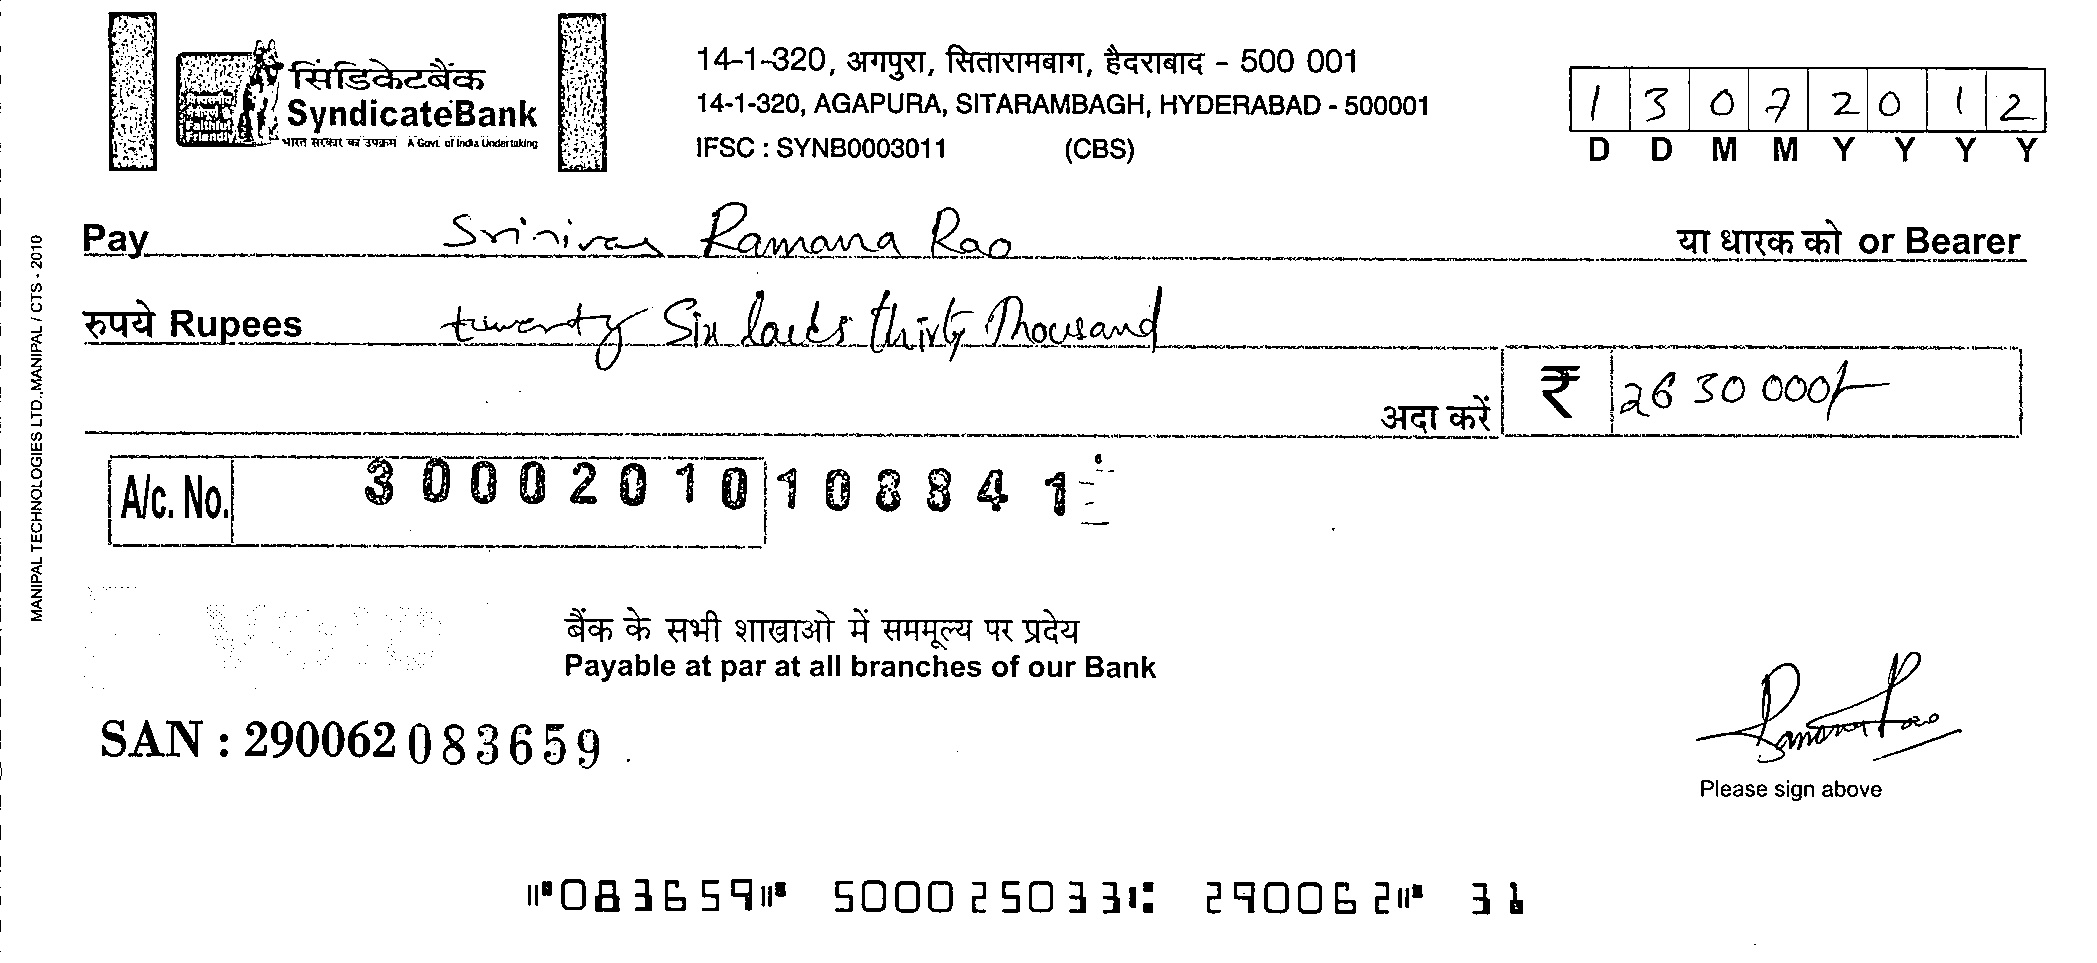 सिंडिकेटबैंक
SyndicateBank
भारत सरकार का उपक्रम A Govt. of India Undertaking
Faithful
Friendly
14-1-320, अगपुरा, सितारामबाग, हैदराबाद - 500 001
14-1-320, AGAPURA, SITARAMBAGH, HYDERABAD - 500001
IFSC : SYNB0003011 (CBS)
1 3 0 7 2 0 1 2
D D M M Y Y Y Y
Pay Srinivas Ramana Rao या धारक को or Bearer
रुपये Rupees twenty Six lacks thirty Thousand
अदा करें ₹ 26 30 000/-
A/c. No. 30002010108841
VOID
बैंक के सभी शाखाओ में सममूल्य पर प्रदेय
Payable at par at all branches of our Bank
SAN : 290062083659
Ramana Rao
Please sign above
⑈083659⑈ 500025033⑆ 290062⑈ 31
MANIPAL TECHNOLOGIES LTD.,MANIPAL / CTS - 2010